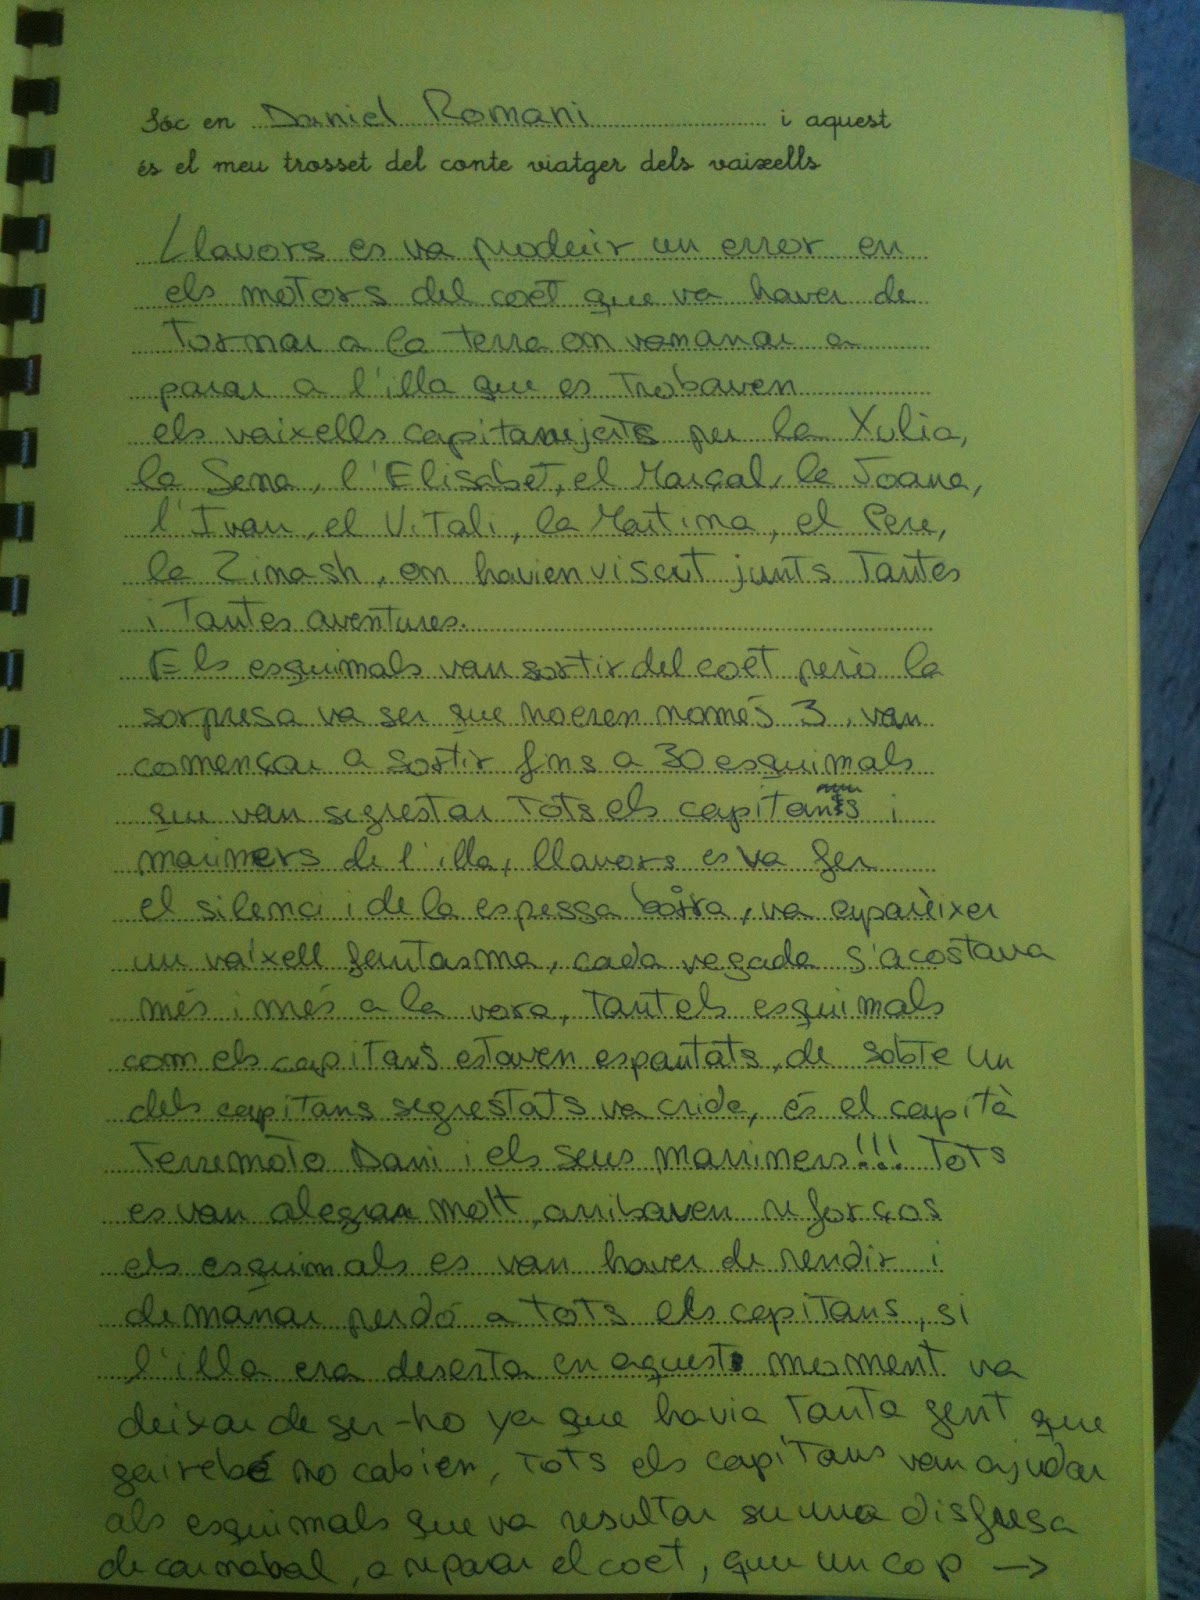 Sóc en Daniel Romani i aquest
és el meu trosset del conte viatger dels vaixells
Llavors es va produir un error en
els motors del coet que va haver de
tornar a la terra on va manar a
parar a l'illa que es trobaven
els vaixells capitanejats per la Xulia,
la Sena, l'Elisabet, el Marçal, la Joana,
l'Ivan, el Vitali, la Martina, el Pere,
la Zinash, on havien viscut junts tantes
i tantes aventures.
Els esquimals van sortir del coet però la
sorpresa va ser que no eren només 3, van
començar a sortir fins a 30 esquimals
que van segrestar tots els capitans i
mariners de l'illa, llavors es va fer
el silenci i de la espessa boira, va aparèixer
un vaixell fantasma, cada vegada s'acostava
més i més a la vora, tant els esquimals
com els capitans estaven espantats, de sobte un
dels capitans segrestats va crida, és el capità
Terremoto Dani i els seus marriners!!! Tots
es van alegrar molt, arribaven reforços
els esquimals es van haver de rendir i
demanar perdó a tots els capitans, si
l'illa era deserta en aquest moment va
deixar de ser-ho ya que havia tanta gent que
gairebé no cabien, tots els capitans van ajudar
als esquimals que va resultar ser una disfresa
de carnabal, a reparar el coet, que un cop →